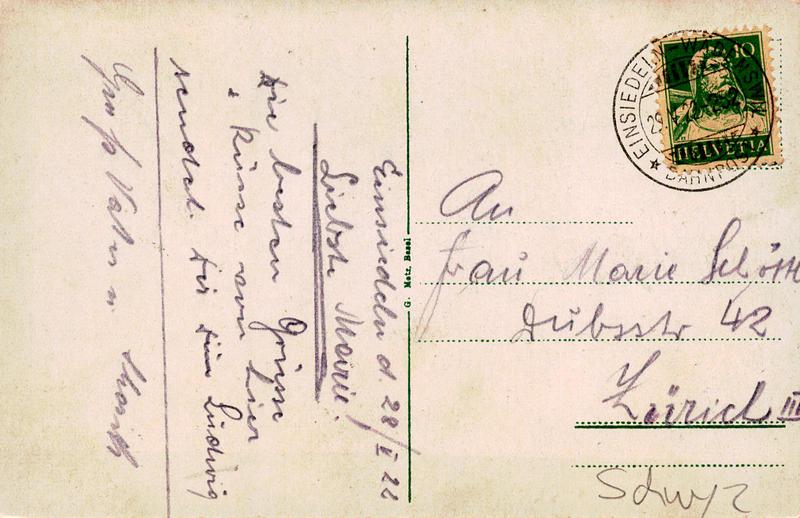 Einsiedeln d. 28/I 22
Liebste Marie!
Die besten Grüsse
& Küsse von hier
sendet dir dein Ludwig
Gross Vater u.
G. Metz, Basel
10
HELVETIA
EINSIEDELN-WÄDENSWIL
BAHNPOST
An
Frau Marie
Dubsstr 42
Zürich III
Schwyz